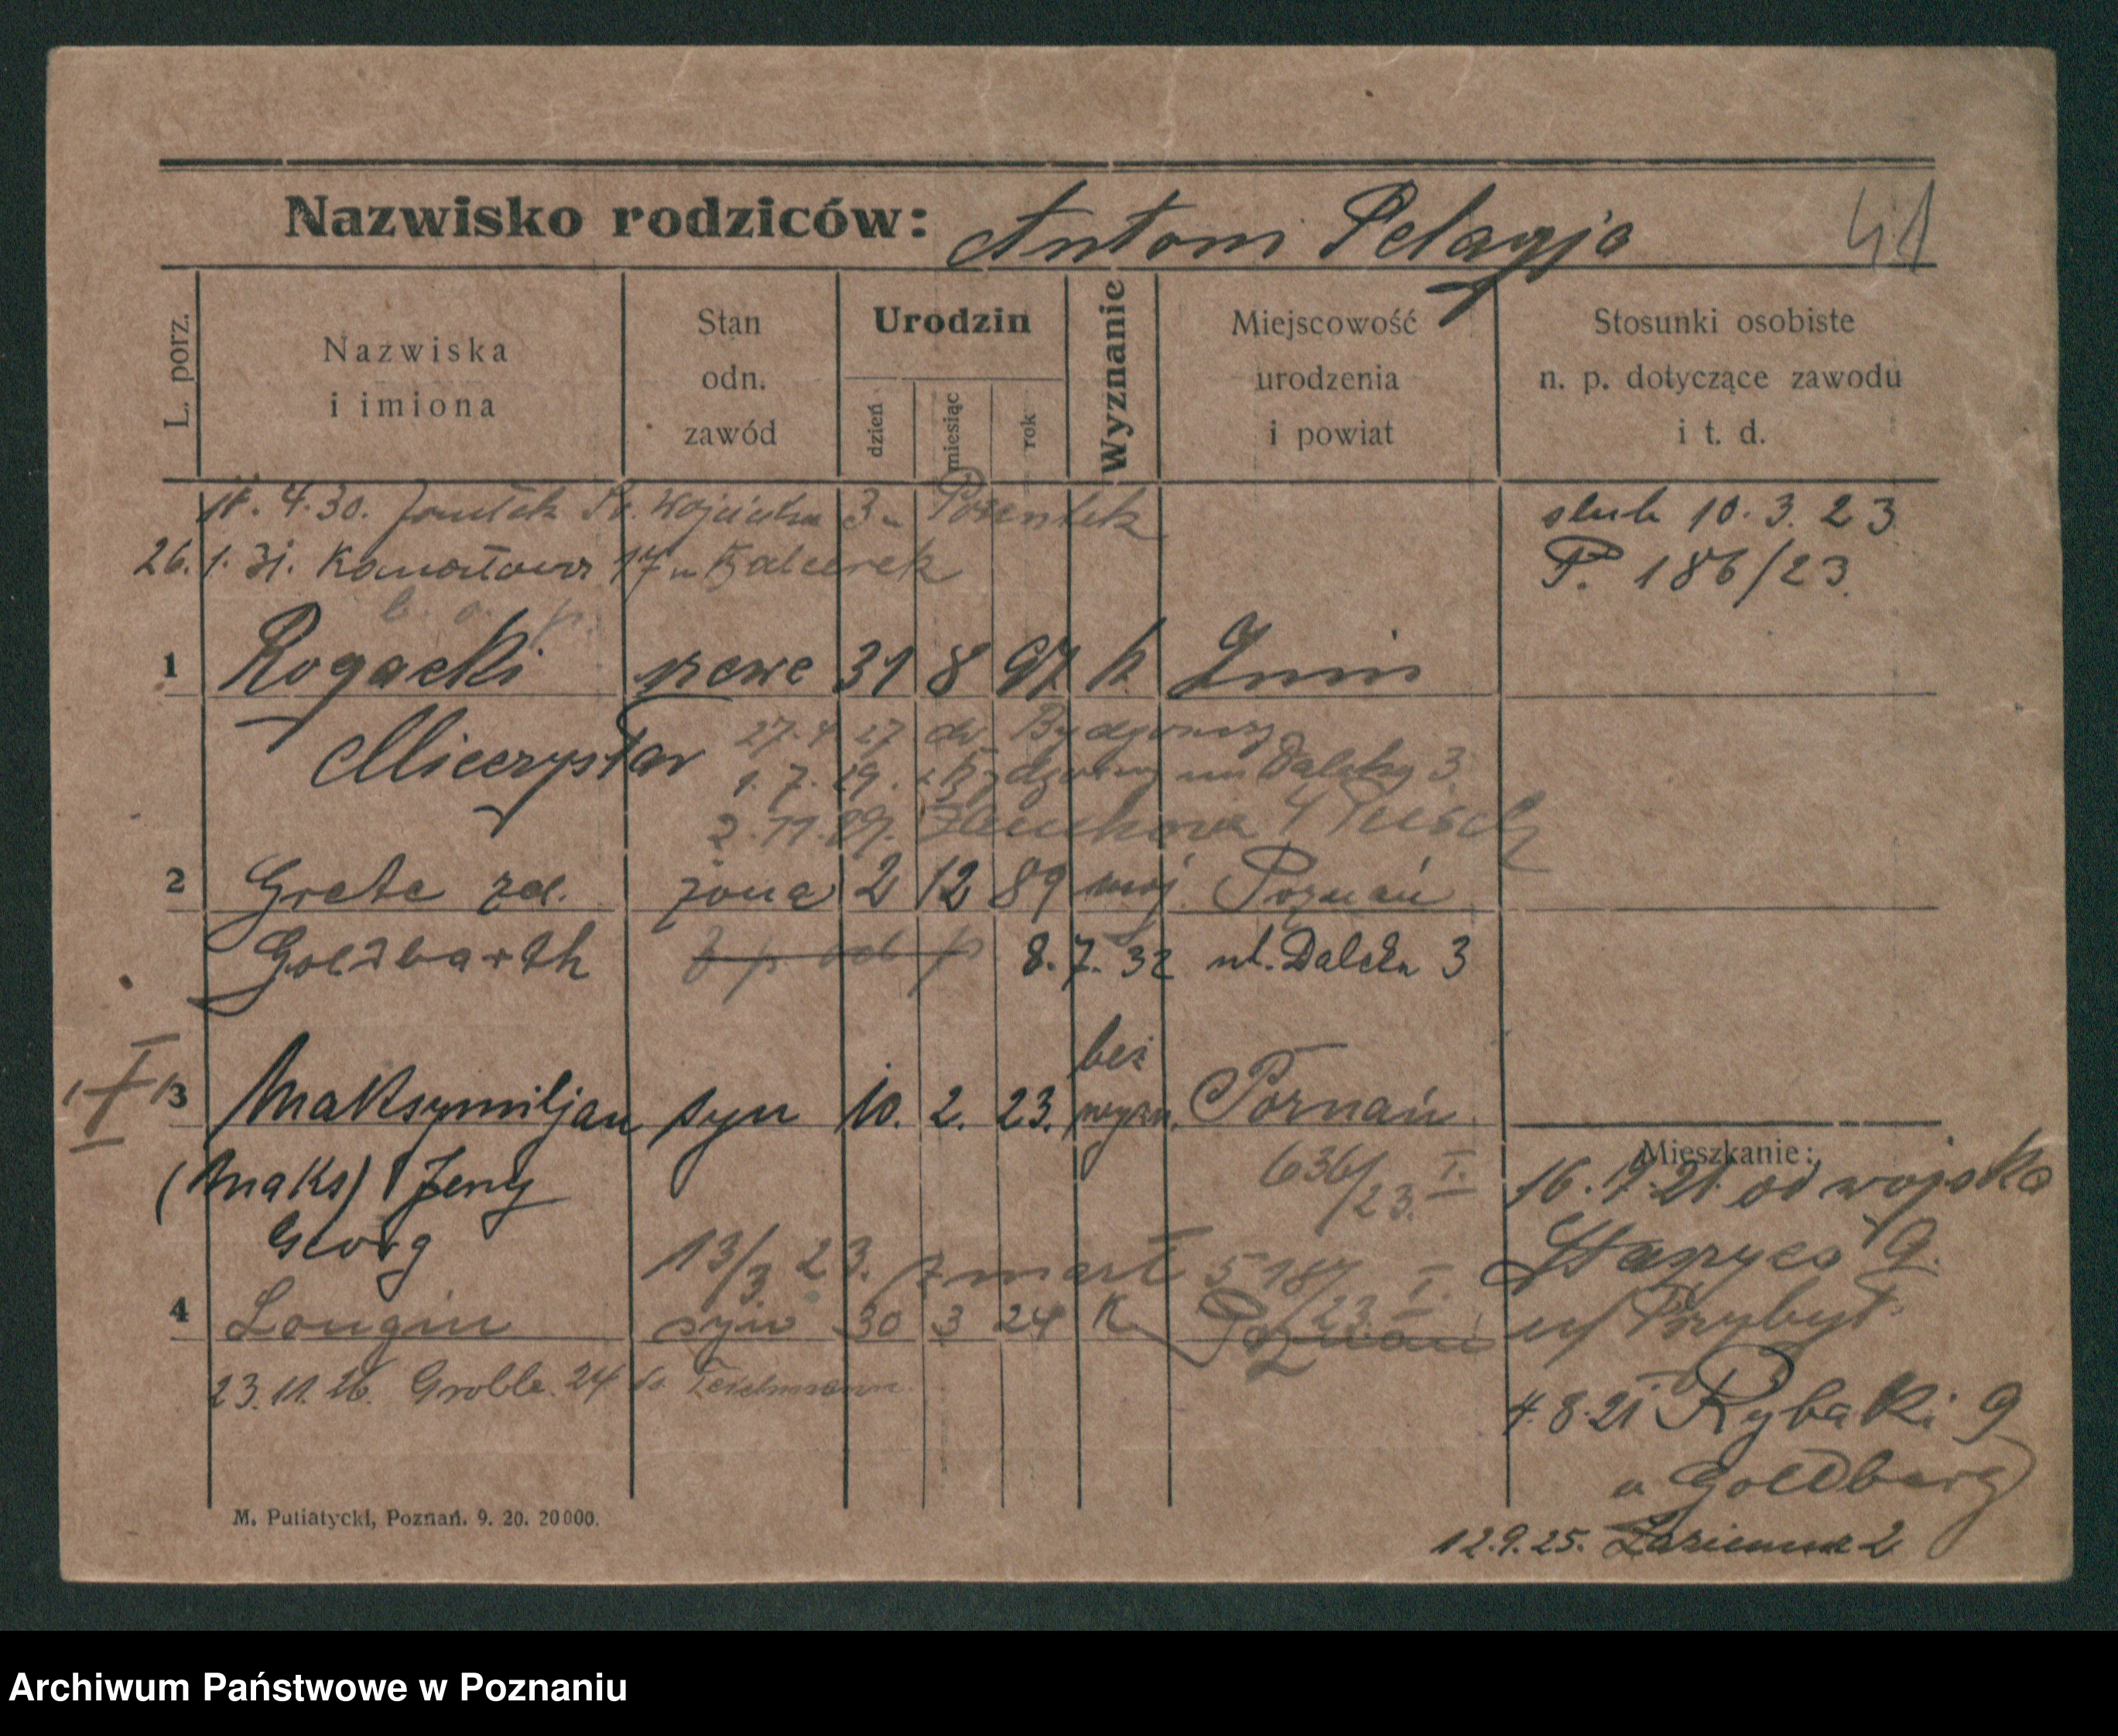 Nazwisko rodziców: Antoni Pelagja 41
L. porz.
Nazwiska
i imiona
Stan
odn.
zawód
Urodzin
dzień
miesiąc
rok
Wyznanie
Miejscowość
urodzenia
i powiat
Stosunki osobiste
n. p. dotyczące zawodu
i t. d.
4.30. Św. Wojciecha 3
26. 1. 31. 17
ślub 10. 3. 23
P. 186/23.
1 Rogacki szewc 31 8 97 k Żnin
Mieczysław
27. 4 27 do Bydgoszcz
1. 7. 29. z Bydgoszcz 3
2. 11. 29. 4
2 Greta zd. żona 2 12 89 moj. Poznań
Goldbarth
8. 7. 32 ul. Daleka 3
bez
3 Maksymiljan syn 10. 2. 23. wyzn. Poznań
(Maks) Jerzy
Georg
636/23. I.
13/3 23. zmarł 5187/23 I.
4 Longin syn 30 3 24 K Poznań
23. 11. 26. Groble 24 Teichmann
Mieszkanie:
od wojska
9.
u/ Przybył
4. 8. 21 Rybaki 9
u Goldberg
12.9.25. Łazienna 2
M. Putiatycki, Poznań. 9. 20. 20000.
Archiwum Państwowe w Poznaniu